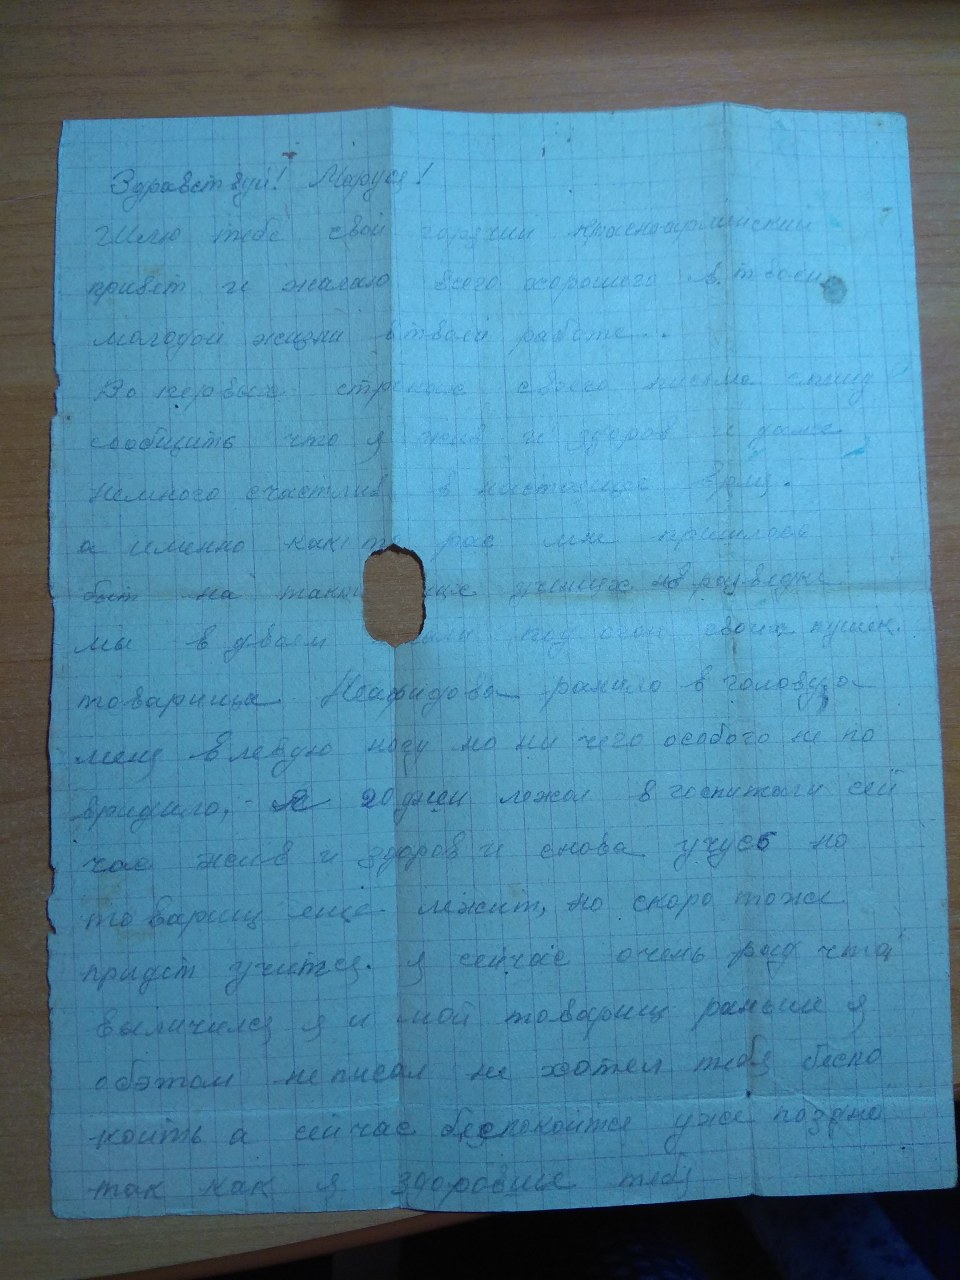 Здравствуй! Маруся!
Шлю тебе свой горячий красноармейский
привет и жалаю всего хорошего в твоей
молодой жизни втвоей работе..
Во первых строках своего письма спешу
сообщить что я жив и здоров и даже
немного счастлив в настоящее время.
а именно как то рас мне пришлось
быт на таки щих учениях в разведке
мы в двоем под огонь своих пушек.
товарища ранило в голову а
меня влевую ногу но ни чего особого не по
вридило, Я 20 дней лежал в госпитали сей
час жив и здоров и снова учусь но
товарищ еще лежит, но скоро тоже
придет учится. я сейчас очень рад что
выличился я и мой товарищ раньше я
обэтом неписал не хотел тебя беспо
коить а сейчас беспокоится уже поздно
так как я здоровие тебя